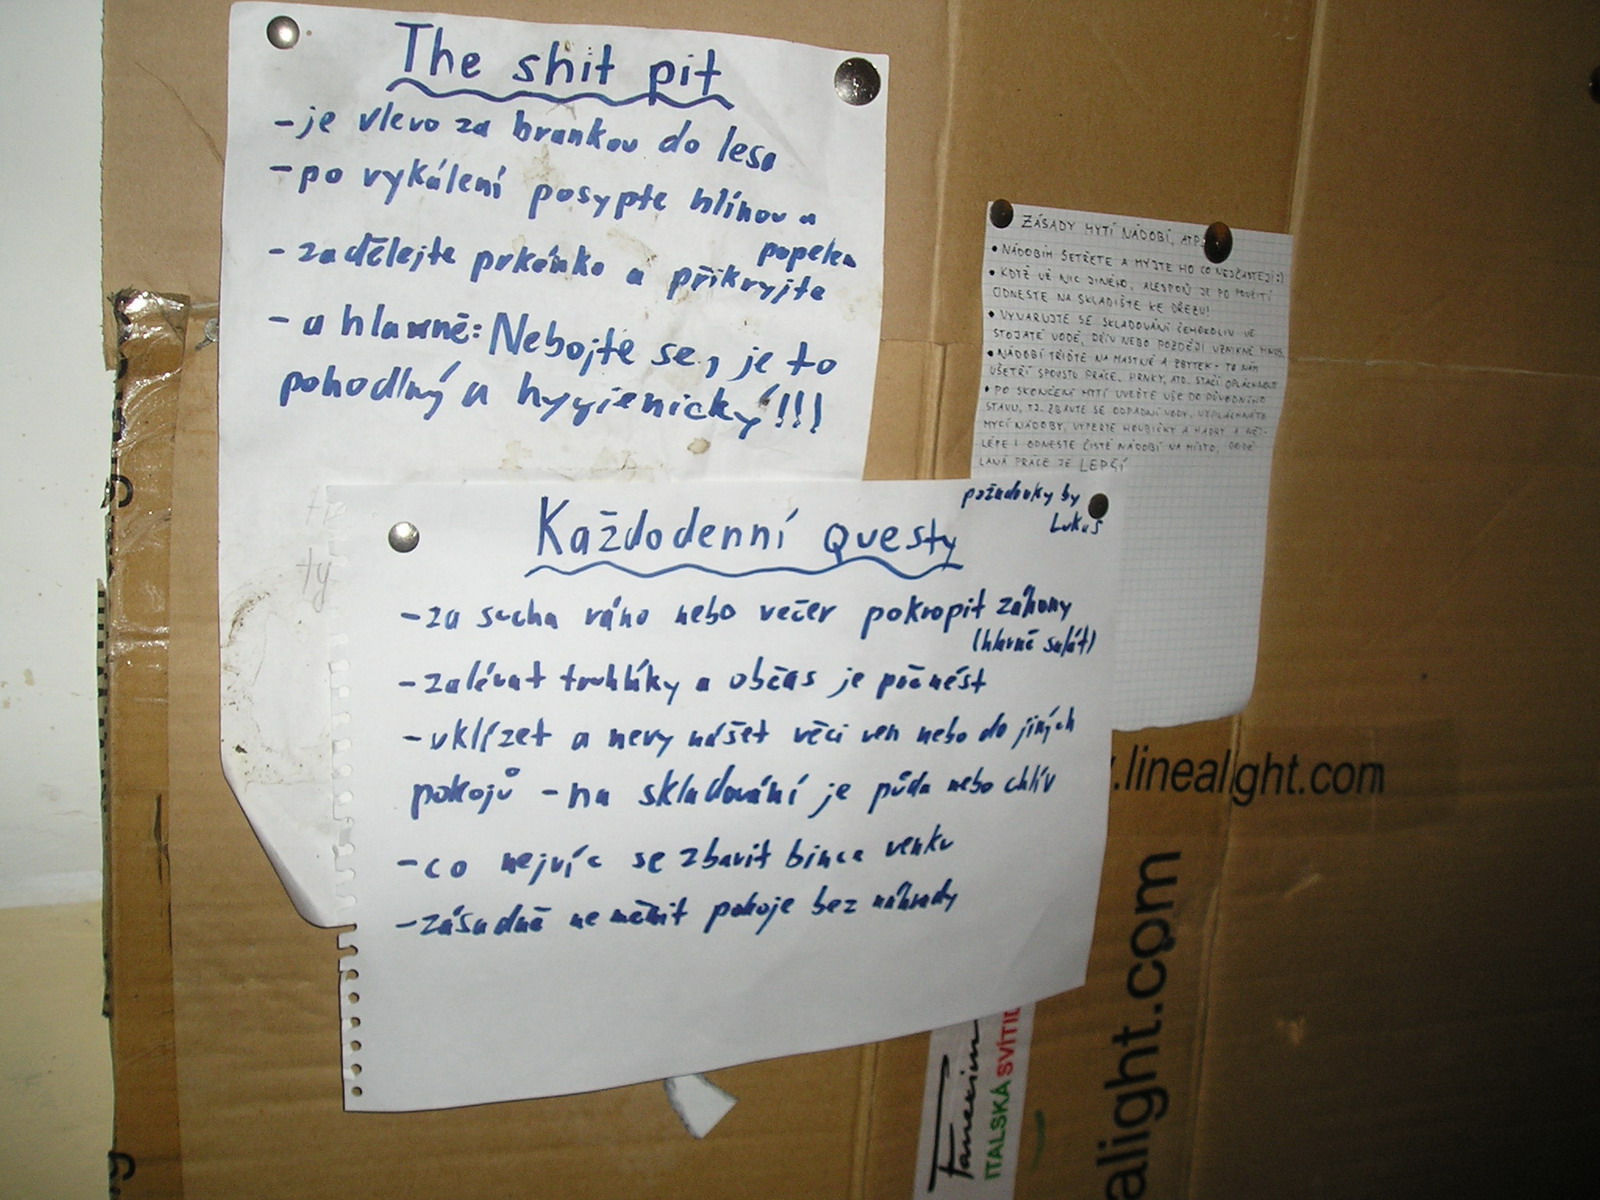 The shit pit
- je vlevo za brankou do lesa
- po vykálení posypte hlínou a
popelem
- zadělejte prkénko a přikryjte
- a hlavně: Nebojte se, je to
pohodlný a hygienický!!!
ZÁSADY MYTÍ NÁDOBÍ, ATP.
• NÁDOBÍM ŠETŘETE A MYJTE HO CO NEJČASTĚJI :)
• KDYŽ UŽ NIC JINÉHO, ALESPOŇ JE PO POUŽITÍ
ODNESTE NA SKLADIŠTE KE DŘEZU!
• VYVARUJTE SE SKLADOVÁNÍ ČEHOKOLIV VE
STOJATÉ VODĚ, DŘÍV NEBO POZDĚJI VZNIKNE HNUS.
• NÁDOBÍ TŘIĎTE NA MASTNÉ A ZBYTEK - TO NÁM
UŠETŘÍ SPOUSTU PRÁCE. HRNKY, ATD. STAČÍ OPLÁCHNOUT
• PO SKONČENÍ MYTÍ UVEĎTE VŠE DO PŮVODNÍHO
STAVU, TJ. ZBAVTE SE ODPADNÍ VODY, VYPLÁCHNĚTE
MYCÍ NÁDOBY, VYPERTE HOUBIČKY A HADRY A NEJ-
LÉPE I ODNESTE ČISTÉ NÁDOBÍ NA MÍSTO. DODĚ-
LANÁ PRÁCE JE LEPŠÍ
požadavky by
Lukáš
Každodenní Questy
- za sucha ráno nebo večer pokropit záhony
(hlavně salát)
- zalévat truhlíky a občas je počnést
- uklízet a nevynášet věci ven nebo do jiných
pokojů - na skladování je půda nebo chlív
- co nejvíc se zbavit binca venku
- zásadně neměnit pokoje bez náhrady
.linealight.com
alight.com
Fanexim
ITALSKÁ SVÍTID